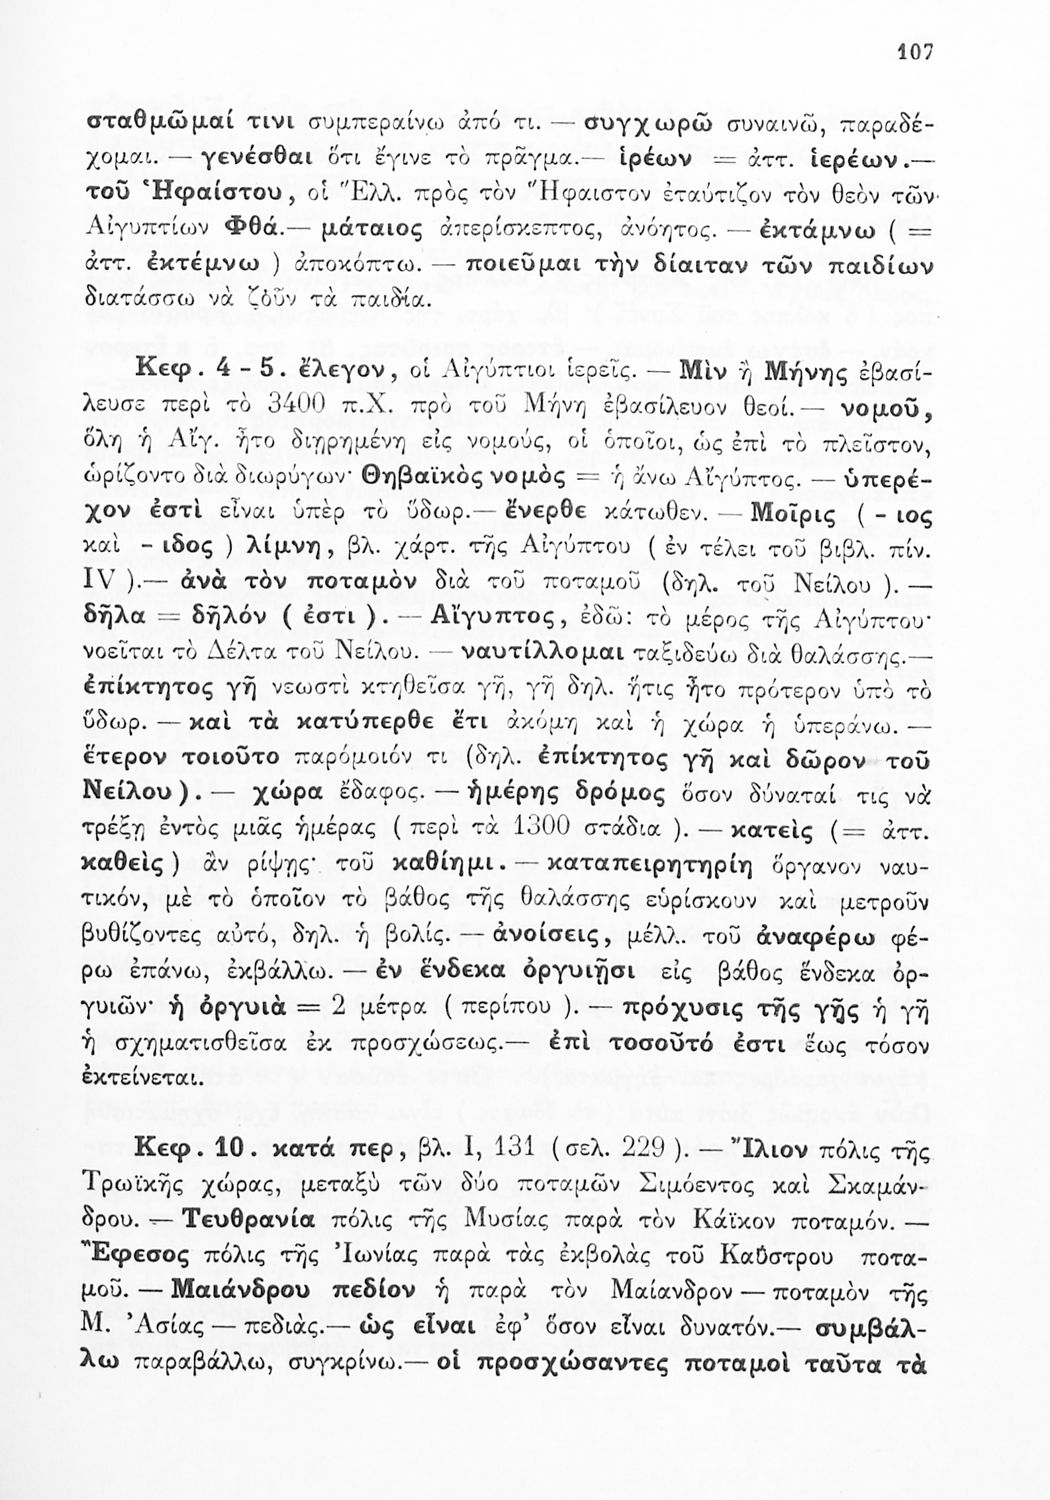 107
σταθμῶμαί τινι συμπεραίνω ἀπό τι. — συγχωρῶ συναινῶ, παραδέ-
χομαι. — γενέσθαι ὅτι ἔγινε τὸ πρᾶγμα.— ἱρέων = ἀττ. ἱερέων.—
τοῦ Ἡφαίστου, οἱ Ἕλλ. πρὸς τὸν Ἥφαιστον ἐταύτιζον τὸν θεὸν τῶν
Αἰγυπτίων Φθά.— μάταιος ἀπερίσκεπτος, ἀνόητος. — ἐκτάμνω ( =
ἀττ. ἐκτέμνω ) ἀποκόπτω. — ποιεῦμαι τὴν δίαιταν τῶν παιδίων
διατάσσω νὰ ζοῦν τὰ παιδία.
Κεφ. 4 - 5. ἔλεγον, οἱ Αἰγύπτιοι ἱερεῖς. — Μὶν ἢ Μήνης ἐβασί-
λευσε περὶ τὸ 3400 π.Χ. πρὸ τοῦ Μήνη ἐβασίλευον θεοί.— νομοῦ,
ὅλη ἡ Αἴγ. ἦτο διῃρημένη εἰς νομούς, οἱ ὁποῖοι, ὡς ἐπὶ τὸ πλεῖστον,
ὡρίζοντο διὰ διωρύγων· Θηβαϊκὸς νομὸς = ἡ ἄνω Αἴγυπτος. — ὑπερέ-
χον ἐστὶ εἶναι ὑπὲρ τὸ ὕδωρ.— ἔνερθε κάτωθεν. — Μοῖρις ( - ιος
καὶ - ιδος ) λίμνη, βλ. χάρτ. τῆς Αἰγύπτου ( ἐν τέλει τοῦ βιβλ. πίν.
IV ).— ἀνὰ τὸν ποταμὸν διὰ τοῦ ποταμοῦ (δηλ. τοῦ Νείλου ). —
δῆλα = δῆλόν ( ἐστι ). — Αἴγυπτος, ἐδῶ: τὸ μέρος τῆς Αἰγύπτου·
νοεῖται τὸ Δέλτα τοῦ Νείλου. — ναυτίλλομαι ταξιδεύω διὰ θαλάσσης.—
ἐπίκτητος γῆ νεωστὶ κτηθεῖσα γῆ, γῆ δηλ. ἥτις ἦτο πρότερον ὑπὸ τὸ
ὕδωρ. — καὶ τὰ κατύπερθε ἔτι ἀκόμη καὶ ἡ χώρα ἡ ὑπεράνω. —
ἕτερον τοιοῦτο παρόμοιόν τι (δηλ. ἐπίκτητος γῆ καὶ δῶρον τοῦ
Νείλου). — χώρα ἔδαφος. — ἡμέρης δρόμος ὅσον δύναταί τις νὰ
τρέξῃ ἐντὸς μιᾶς ἡμέρας ( περὶ τὰ 1300 στάδια ). — κατεὶς (= ἀττ.
καθεὶς ) ἂν ρίψῃς· τοῦ καθίημι. — καταπειρητηρίη ὄργανον ναυ-
τικόν, μὲ τὸ ὁποῖον τὸ βάθος τῆς θαλάσσης εὑρίσκουν καὶ μετροῦν
βυθίζοντες αὐτό, δηλ. ἡ βολίς. — ἀνοίσεις, μέλλ. τοῦ ἀναφέρω φέ-
ρω ἐπάνω, ἐκβάλλω. — ἐν ἕνδεκα ὀργυιῇσι εἰς βάθος ἕνδεκα ὀρ-
γυιῶν· ἡ ὀργυιὰ = 2 μέτρα ( περίπου ). — πρόχυσις τῆς γῆς ἡ γῆ
ἡ σχηματισθεῖσα ἐκ προσχώσεως.— ἐπὶ τοσοῦτό ἐστι ἕως τόσον
ἐκτείνεται.
Κεφ. 10. κατά περ, βλ. Ι, 131 (σελ. 229 ). — Ἴλιον πόλις τῆς
Τρωϊκῆς χώρας, μεταξὺ τῶν δύο ποταμῶν Σιμόεντος καὶ Σκαμάν-
δρου. — Τευθρανία πόλις τῆς Μυσίας παρὰ τὸν Κάϊκον ποταμόν. —
Ἔφεσος πόλις τῆς Ἰωνίας παρὰ τὰς ἐκβολὰς τοῦ Καΰστρου ποτα-
μοῦ. — Μαιάνδρου πεδίον ἡ παρὰ τὸν Μαίανδρον — ποταμὸν τῆς
Μ. Ἀσίας — πεδιὰς.— ὡς εἶναι ἐφ' ὅσον εἶναι δυνατόν.— συμβάλ-
λω παραβάλλω, συγκρίνω.— οἱ προσχώσαντες ποταμοὶ ταῦτα τὰ